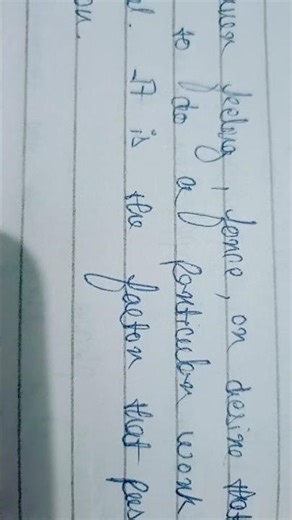 feeling, force, or desire that
to do a particular work
l. It is the factor that
on.